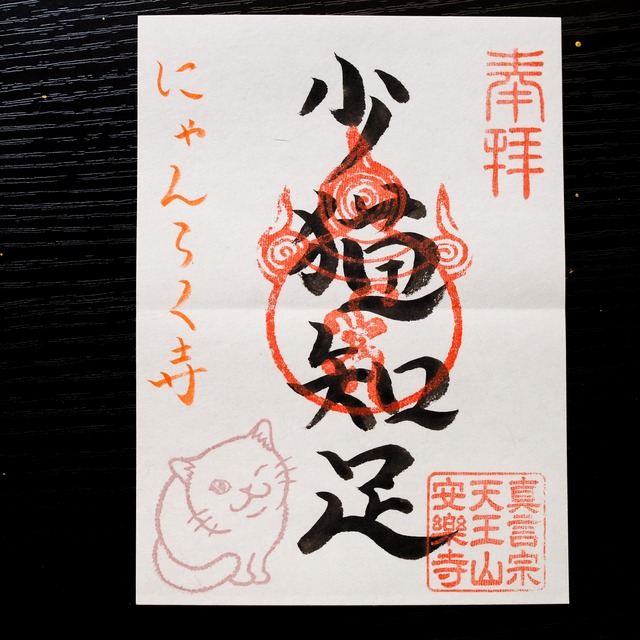 奉拝
真言宗
天王山
安樂寺
少猫知足
にゃんらく寺